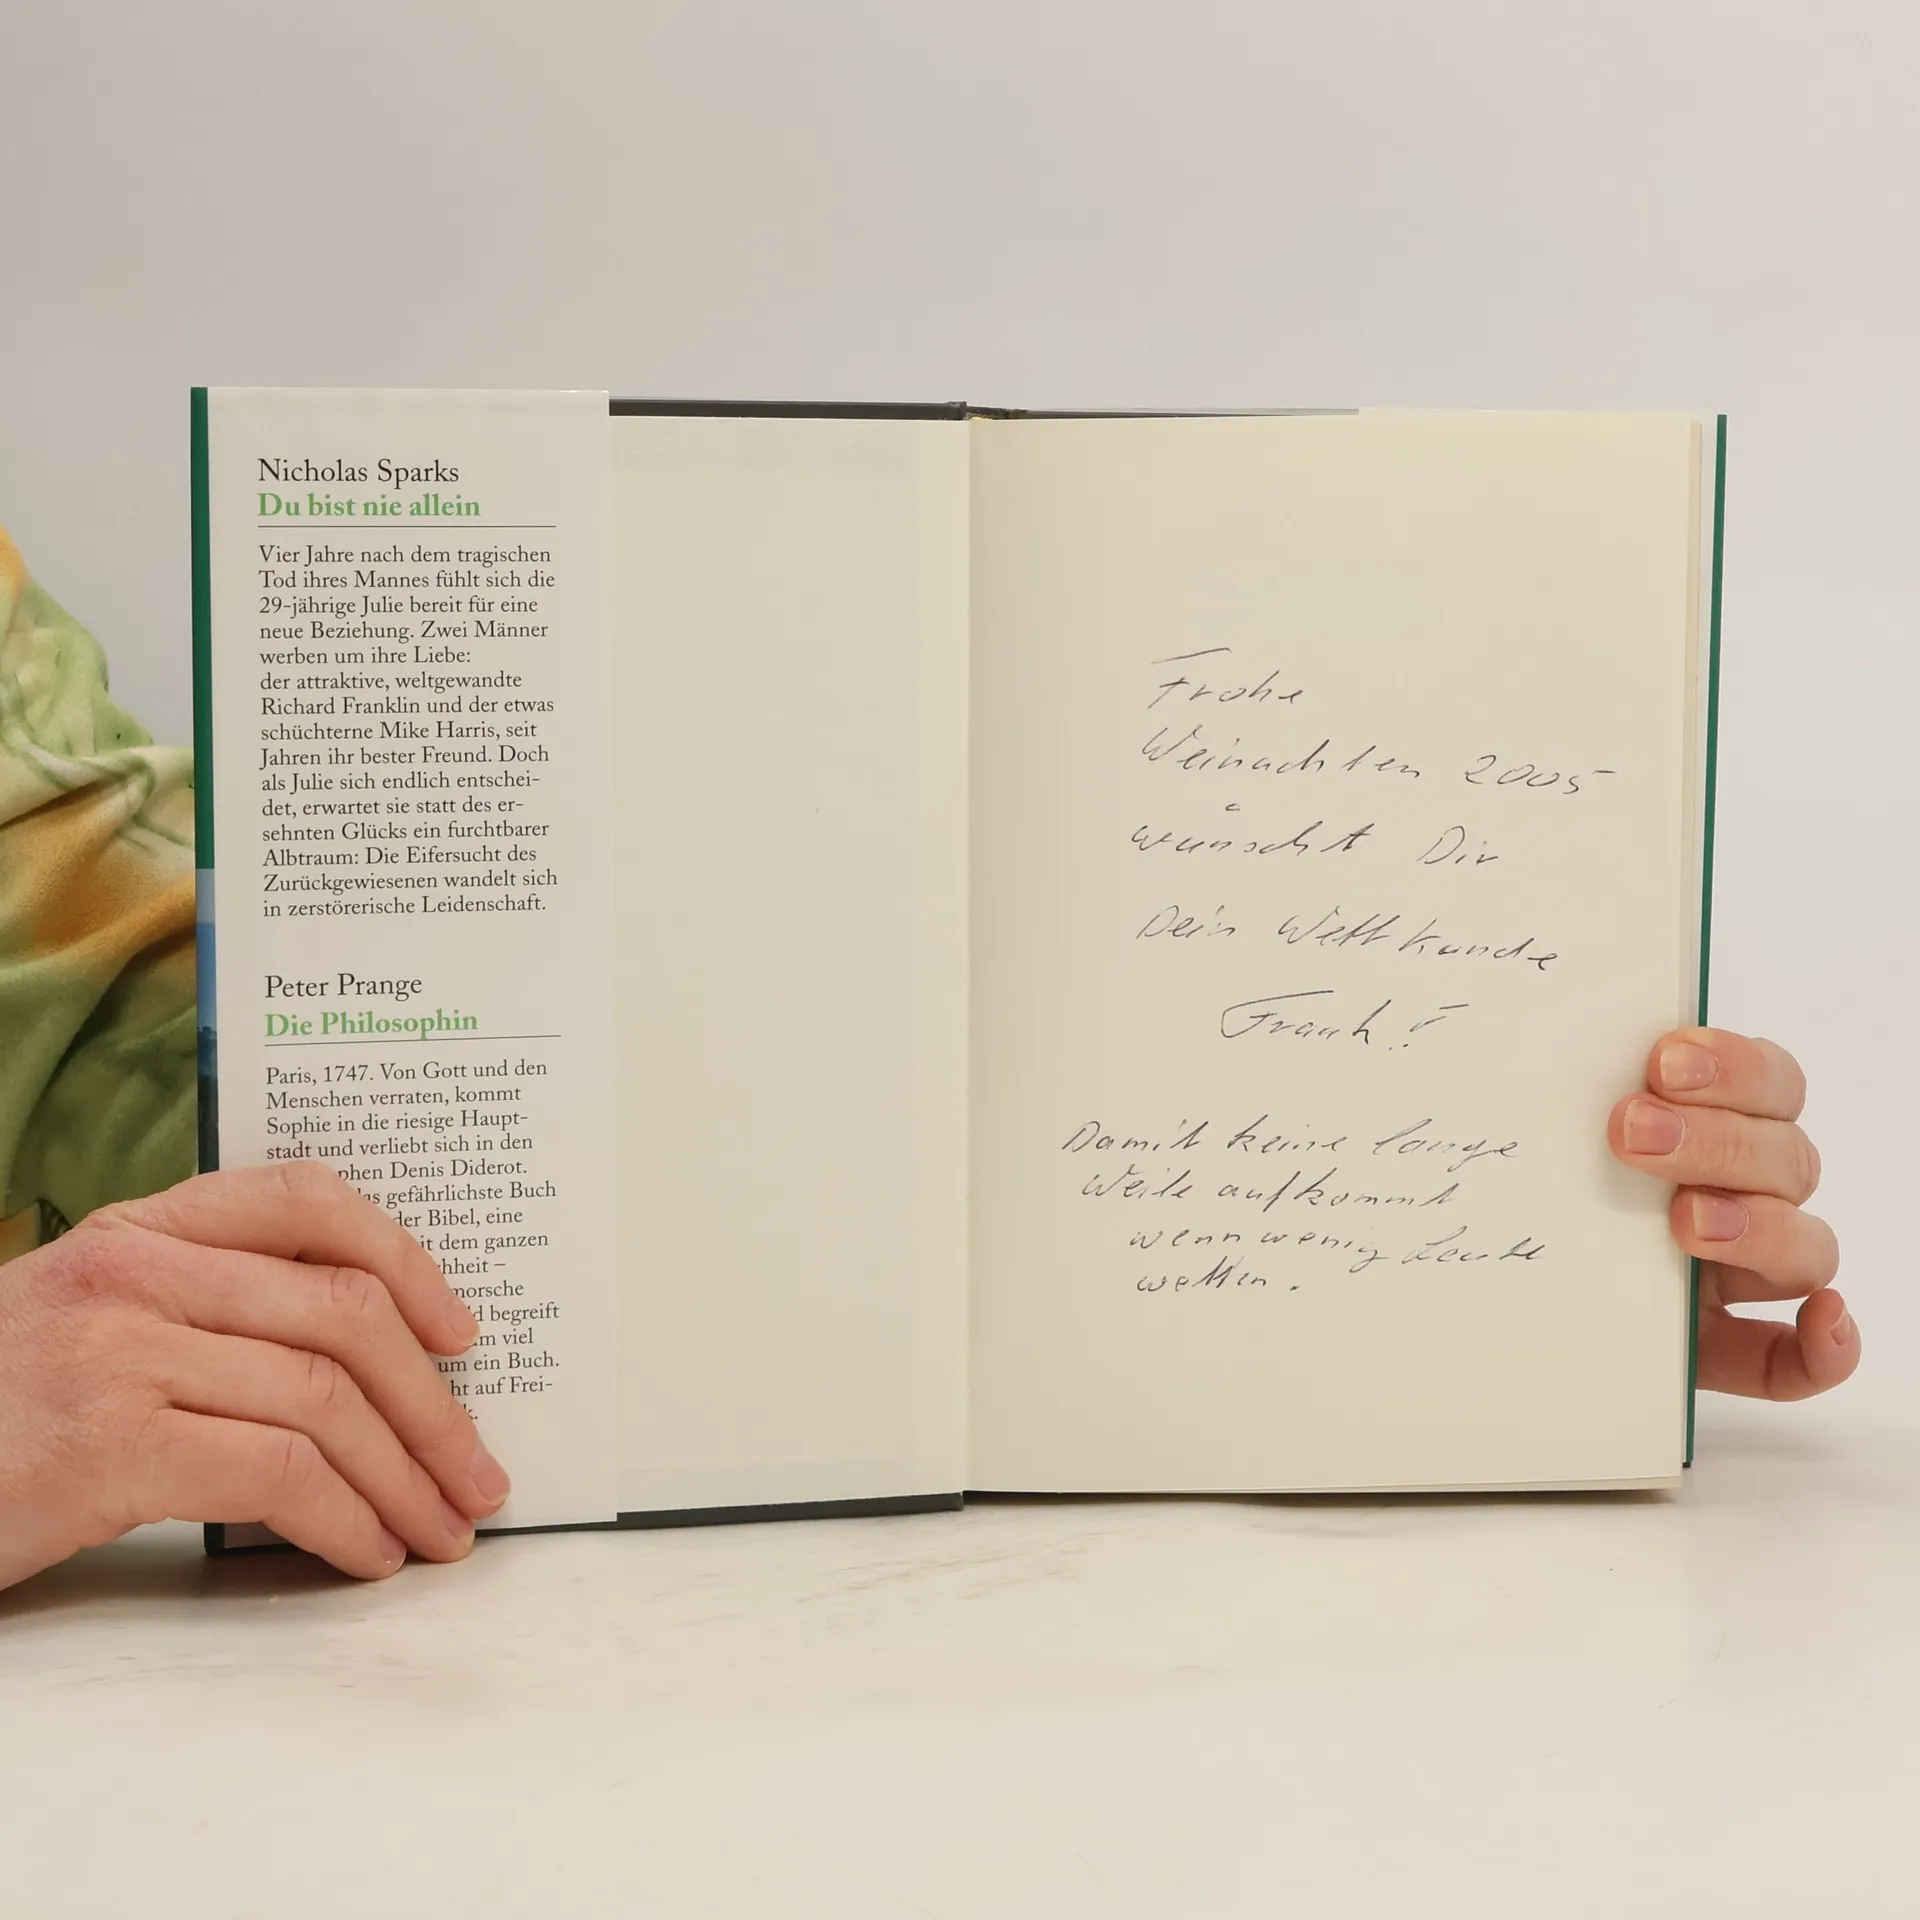 Nicholas Sparks
Du bist nie allein
Vier Jahre nach dem tragischen
Tod ihres Mannes fühlt sich die
29-jährige Julie bereit für eine
neue Beziehung. Zwei Männer
werben um ihre Liebe:
der attraktive, weltgewandte
Richard Franklin und der etwas
schüchterne Mike Harris, seit
Jahren ihr bester Freund. Doch
als Julie sich endlich entschei-
det, erwartet sie statt des er-
sehnten Glücks ein furchtbarer
Albtraum: Die Eifersucht des
Zurückgewiesenen wandelt sich
in zerstörerische Leidenschaft.
Peter Prange
Die Philosophin
Paris, 1747. Von Gott und den
Menschen verraten, kommt
Sophie in die riesige Haupt-
stadt und verliebt sich in den
phen Denis Diderot.
as gefährlichste Buch
der Bibel, eine
it dem ganzen
hheit –
morsche
d begreift
m viel
um ein Buch.
ht auf Frei-
k.
Frohe
Weinachten 2005
wünscht Dir
Dein Wettkunde
Frank !
Damit keine lange
Weile aufkommt
wenn wenig Leute
wetten .